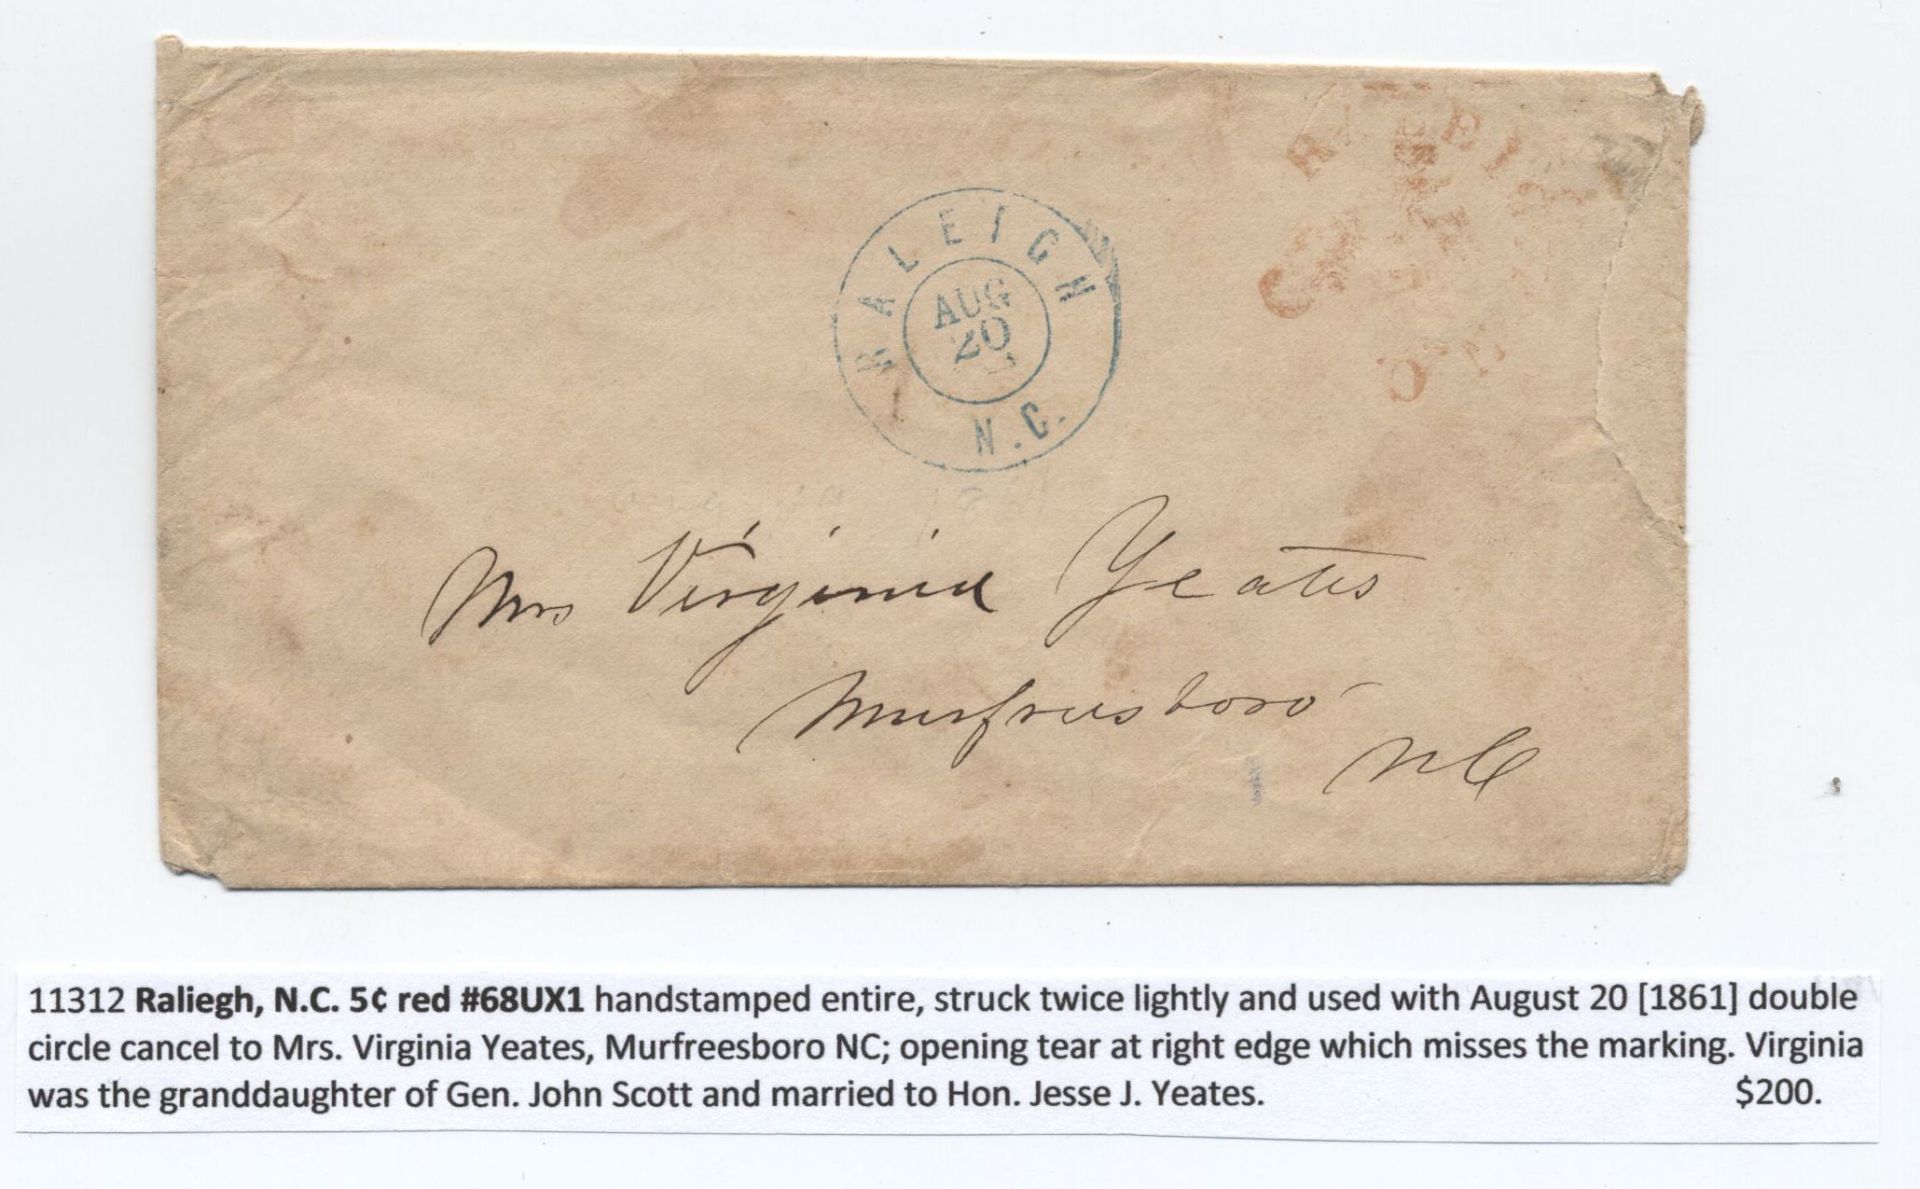 RALEIGH
N.C.
RALEIGH
AUG
20
N.C.
Mrs Virginia Yeates
Murfreesboro
NC
11312 Raliegh, N.C. 5¢ red #68UX1 handstamped entire, struck twice lightly and used with August 20 [1861] double
circle cancel to Mrs. Virginia Yeates, Murfreesboro NC; opening tear at right edge which misses the marking. Virginia
was the granddaughter of Gen. John Scott and married to Hon. Jesse J. Yeates. $200.